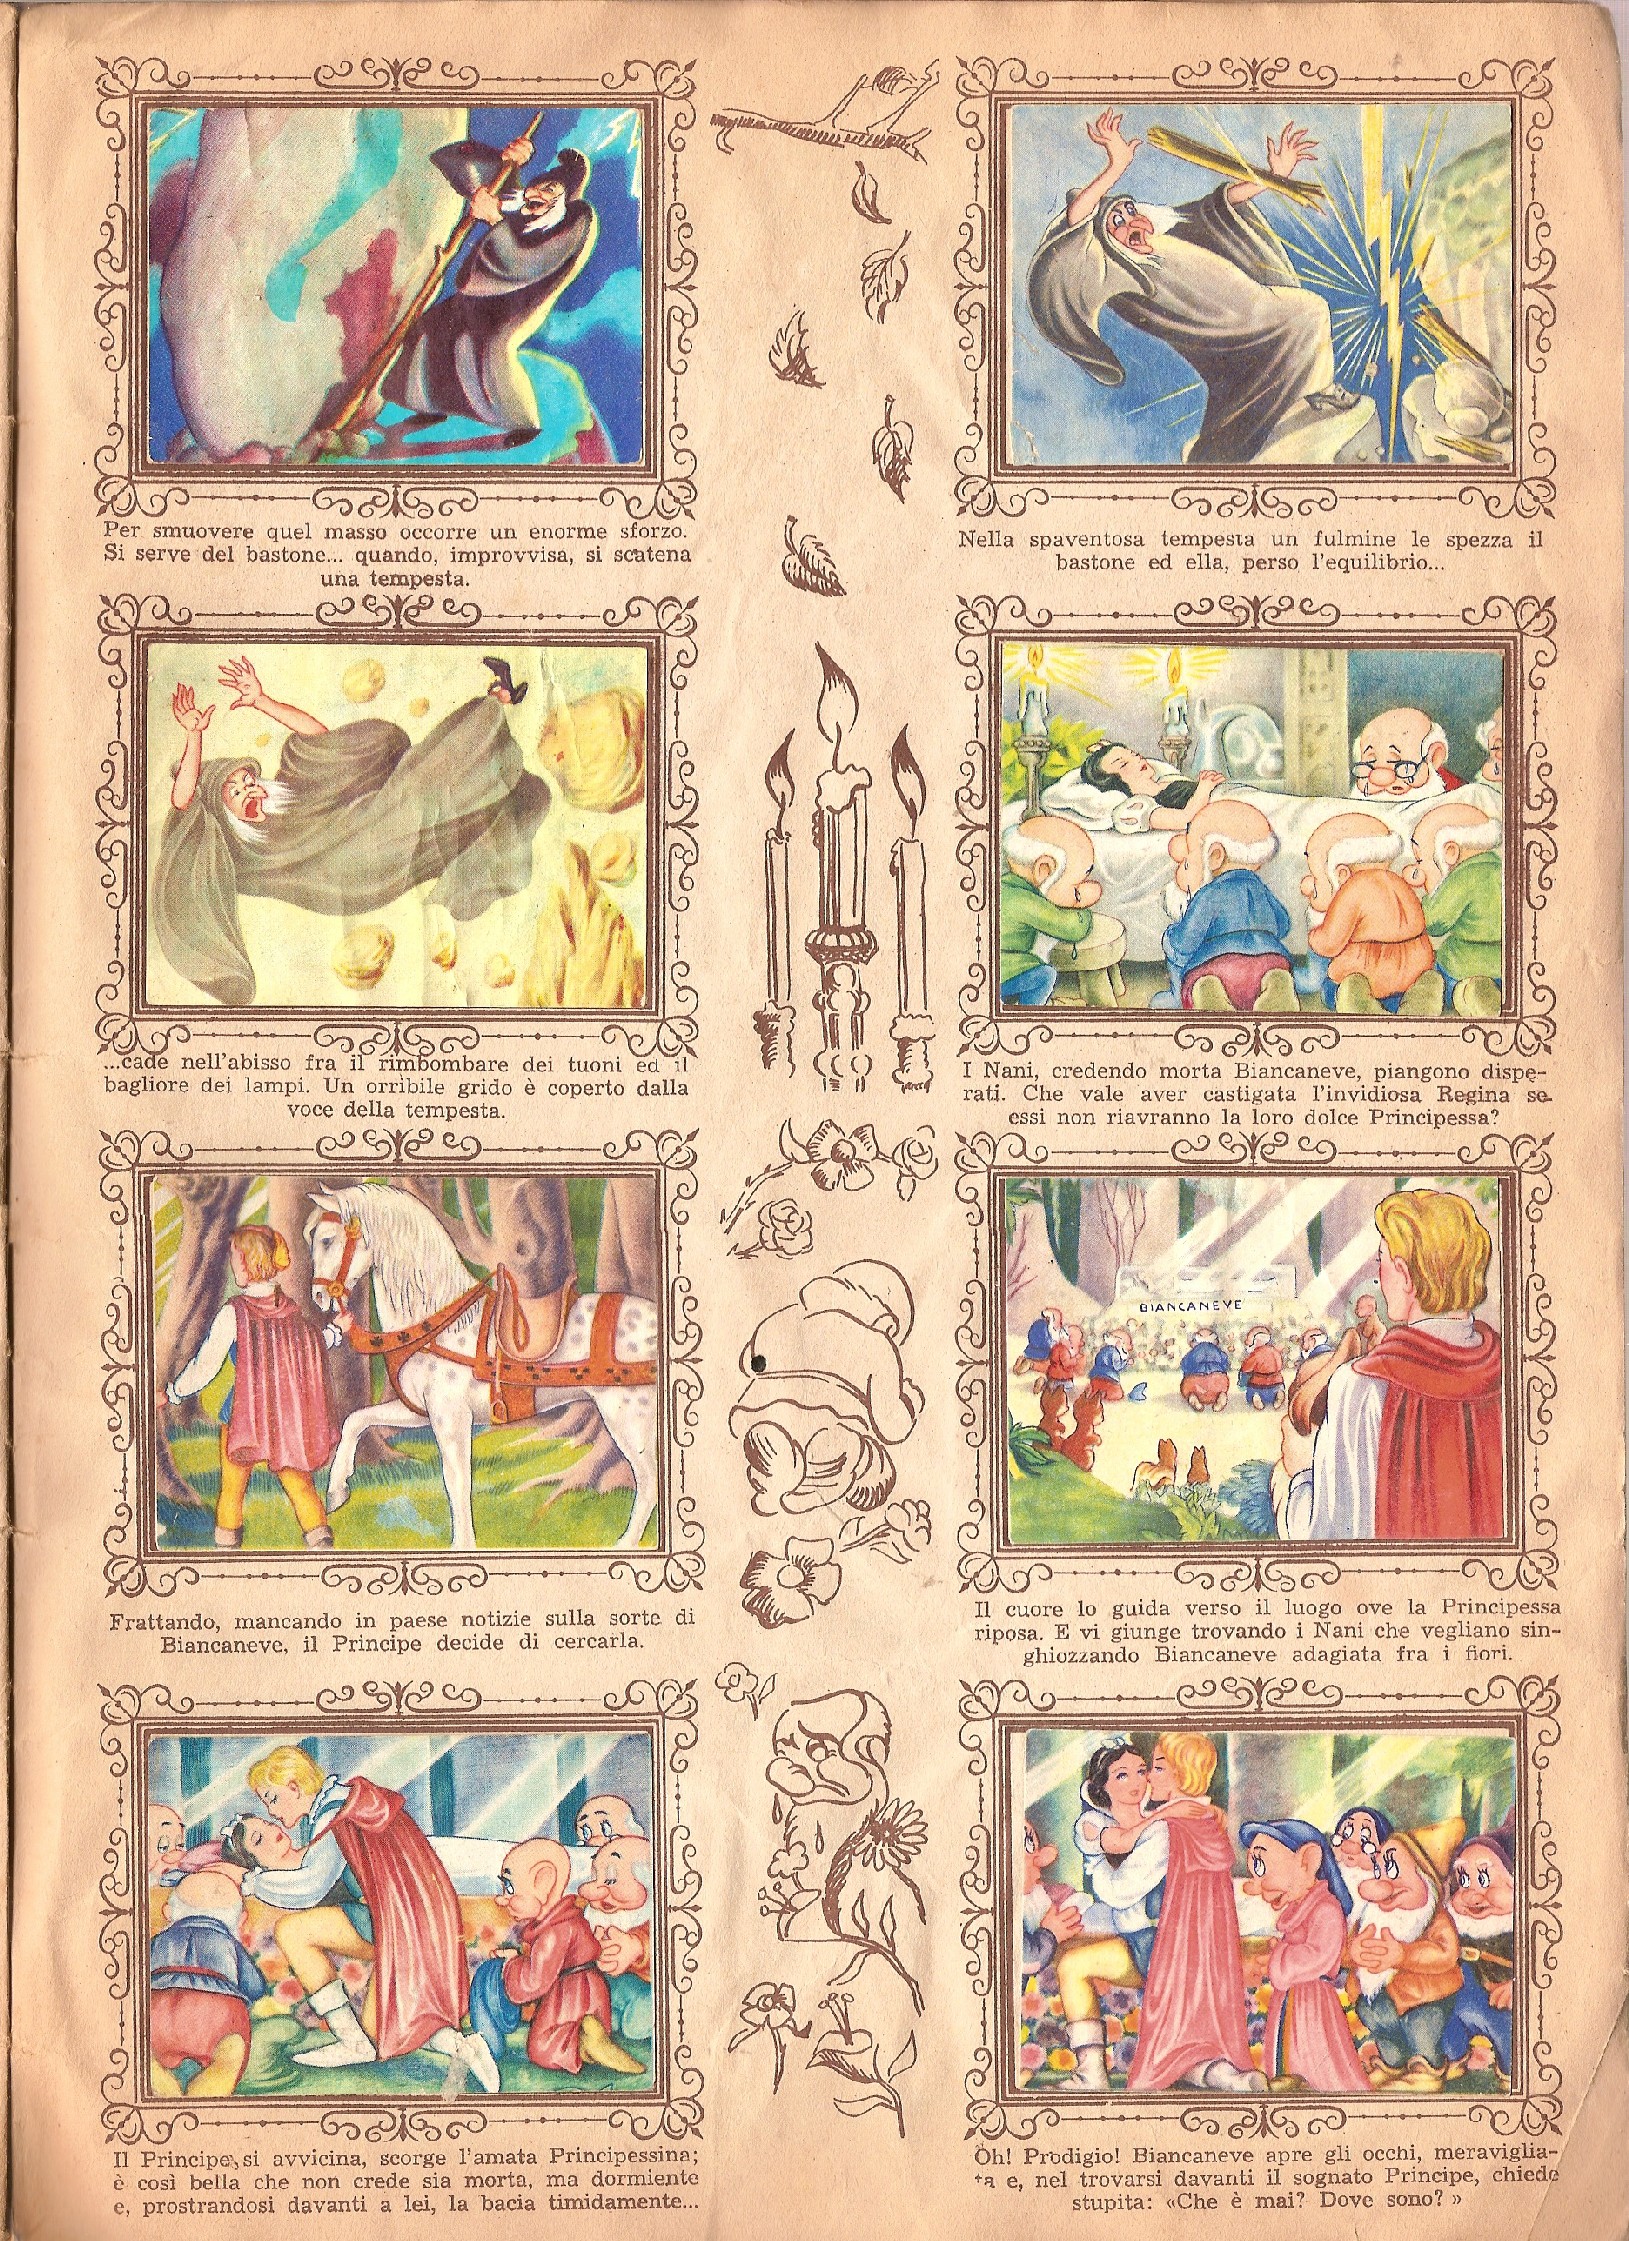 Per smuovere quel masso occorre un enorme sforzo.
Si serve del bastone... quando, improvvisa, si scatena
una tempesta.
Nella spaventosa tempesta un fulmine le spezza il
bastone ed ella, perso l'equilibrio...
...cade nell'abisso fra il rimbombare dei tuoni ed il
bagliore dei lampi. Un orribile grido è coperto dalla
voce della tempesta.
I Nani, credendo morta Biancaneve, piangono dispe-
rati. Che vale aver castigata l'invidiosa Regina se
essi non riavranno la loro dolce Principessa?
BIANCANEVE
Frattando, mancando in paese notizie sulla sorte di
Biancaneve, il Principe decide di cercarla.
Il cuore lo guida verso il luogo ove la Principessa
riposa. E vi giunge trovando i Nani che vegliano sin-
ghiozzando Biancaneve adagiata fra i fiori.
Il Principe, si avvicina, scorge l'amata Principessina;
è così bella che non crede sia morta, ma dormiente
e, prostrandosi davanti a lei, la bacia timidamente...
Oh! Prodigio! Biancaneve apre gli occhi, meraviglia-
ta e, nel trovarsi davanti il sognato Principe, chiede
stupita: «Che è mai? Dove sono? »